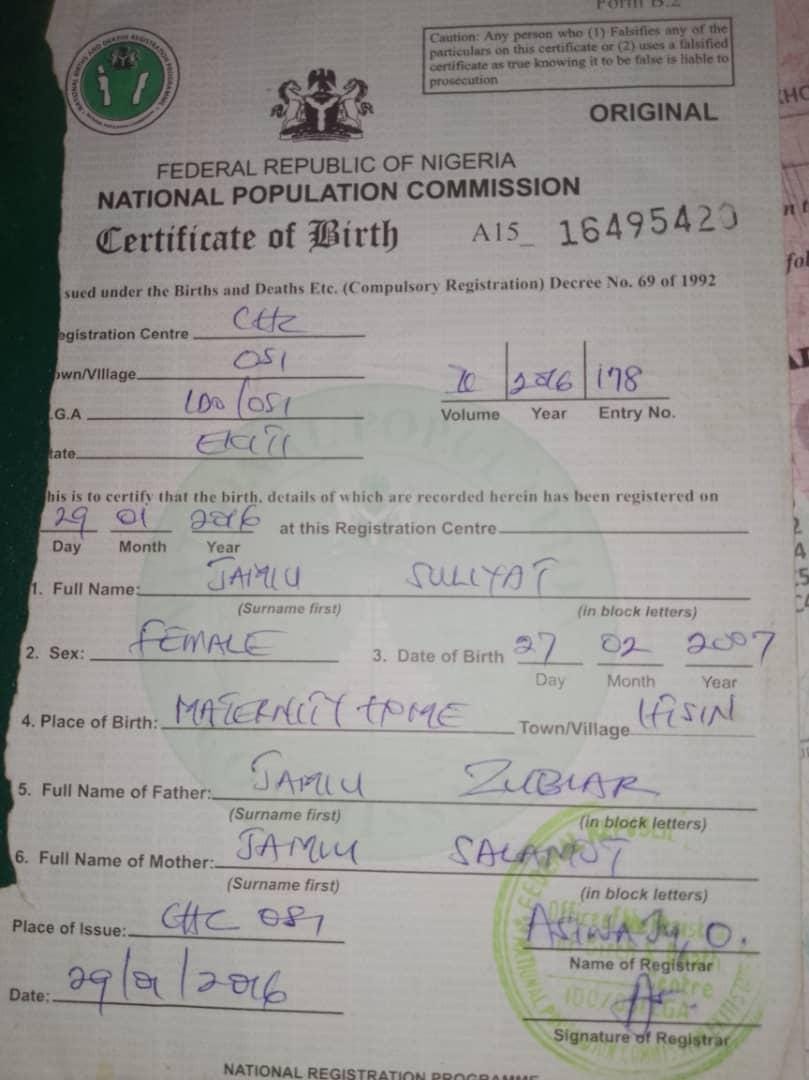 Form B.2
Caution: Any person who (1) Falsifies any of the
particulars on this certificate or (2) uses a falsified
certificate as true knowing it to be false is liable to
prosecution
ORIGINAL
FEDERAL REPUBLIC OF NIGERIA
NATIONAL POPULATION COMMISSION
Certificate of Birth A15_ 16495420
sued under the Births and Deaths Etc. (Compulsory Registration) Decree No. 69 of 1992
egistration Centre CHC
own/Village OSI
.G.A IDO/OSI
tate EKITI
2016 178
Volume Year Entry No.
his is to certify that the birth, details of which are recorded herein has been registered on
29 01 2016 at this Registration Centre
Day Month Year
1. Full Name: JAMIU SULIYAT
(Surname first) (in block letters)
2. Sex: FEMALE 3. Date of Birth 27 02 2007
Day Month Year
4. Place of Birth: MATERNITY HOME Town/Village IFISIN
5. Full Name of Father: JAMIU ZUBIAR
(Surname first) (in block letters)
6. Full Name of Mother: JAMIU SALAMOT
(Surname first) (in block letters)
Place of Issue: CHC OSI
ASINAJU, O.
Name of Registrar
Date: 29/01/2016
Signature of Registrar
NATIONAL REGISTRATION PROGRAMME